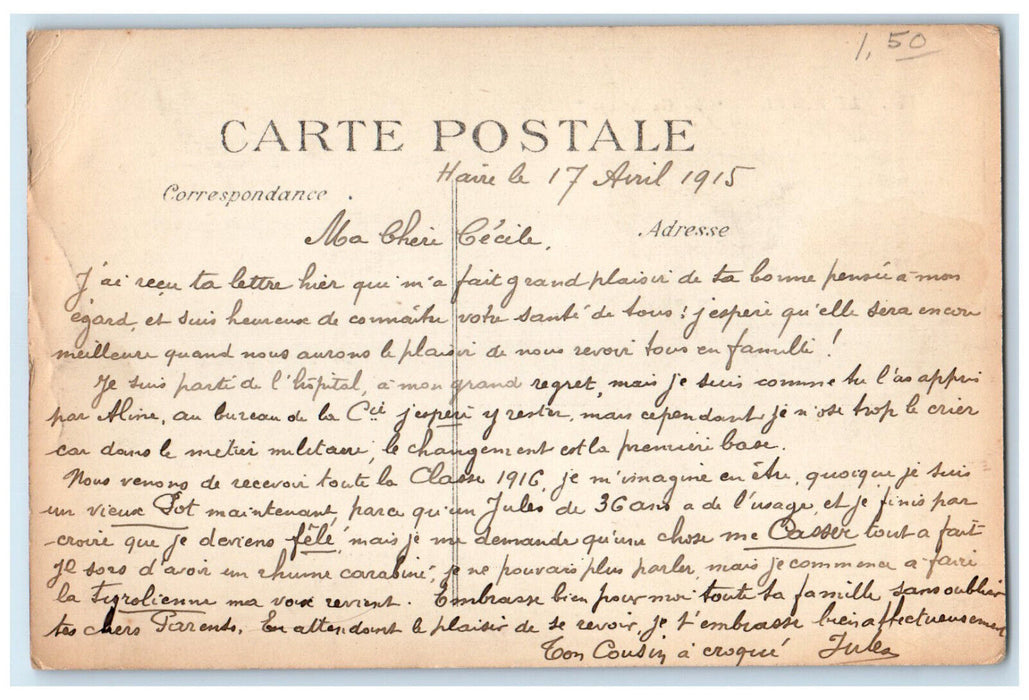 1,50
CARTE POSTALE
Havre le 17 Avril 1915
Correspondance.
Adresse
Ma Chère Cécile,
J'ai reçu ta lettre hier qui m'a fait grand plaisir de ta bonne pensée à mon
égard, et suis heureux de connaître votre santé de tous ; j'espère qu'elle sera encore
meilleure quand nous aurons le plaisir de nous revoir tous en famille !
Je suis parti de l'hôpital, à mon grand regret, mais je suis comme tu l'as appris
par Aline, au bureau de la Cie j'espère y rester, mais cependant je n'ose trop le crier
car dans le métier militaire, le changement est la première base.
Nous venons de recevoir toute la Classe 1916, je m'imagine en être, quoique je suis
un vieux Pot maintenant, parce qu'un Jules de 36 ans a de l'usage, et je finis par
croire que je deviens fêlé, mais je me demande qu'une chose me Casser tout a fait
Je sors d'avoir un rhume carabiné, je ne pouvais plus parler, mais je commence à faire
la Tyrolienne ma voix revient. Embrasse bien pour moi toute ta famille sans oublier
tes chers Parents. En attendant le plaisir de se revoir, je t'embrasse bien affectueusement
Ton Cousin à croqué Jules